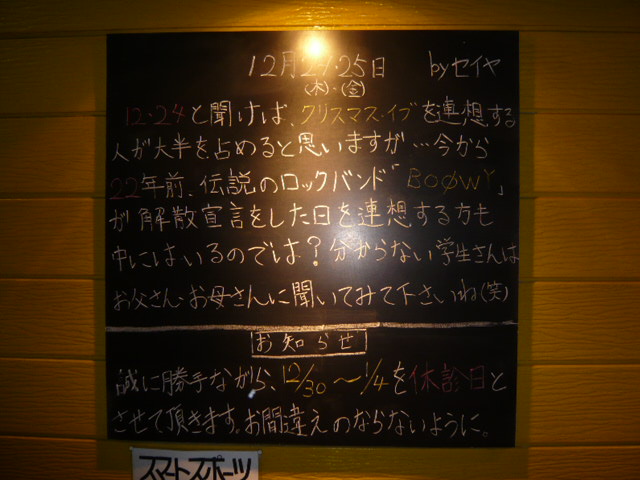 12月24・25日 byセイヤ
(木)・(金)
12・24と聞けば、クリスマス・イブを連想する
人が大半を占めると思いますが…今から
22年前、伝説のロックバンド「BOØWY」
が解散宣言をした日を連想する方も
中にはいるのでは?分からない学生さんは
お父さん・お母さんに聞いてみて下さいね(笑)
お知らせ
誠に勝手ながら、12/30〜1/4を休診日と
させて頂きます。お間違えのならないように。
スマートスポーツ